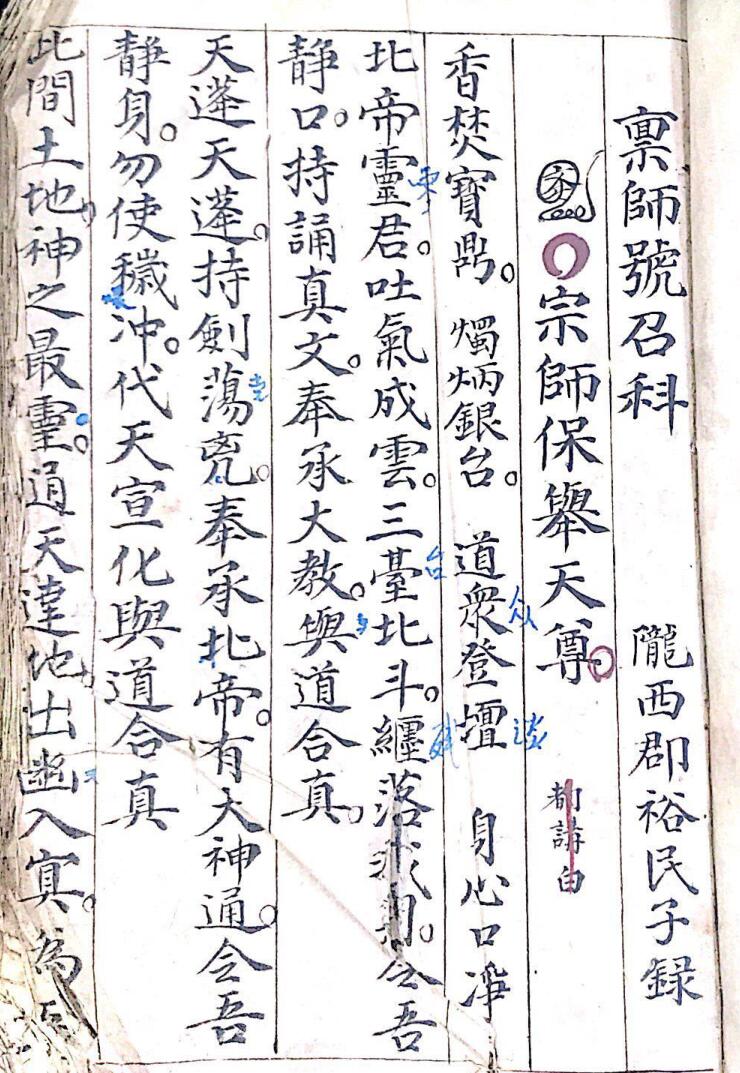 禀師號召科 隴西郡裕民子録
宗師保舉天尊 都講白
香焚寶鼎。燭炳銀台。道衆登壇 身心口淨
北帝靈君。吐氣成雲。三臺北斗。纏落 令吾
静口。持誦真文。奉承大教。與道合真。
天蓬天蓬。持劍蕩兇。奉承北帝。有大神通。令吾
静身。勿使穢冲。代天宣化與道合真
此間土地，神之最靈。通天達地，出幽入冥。為